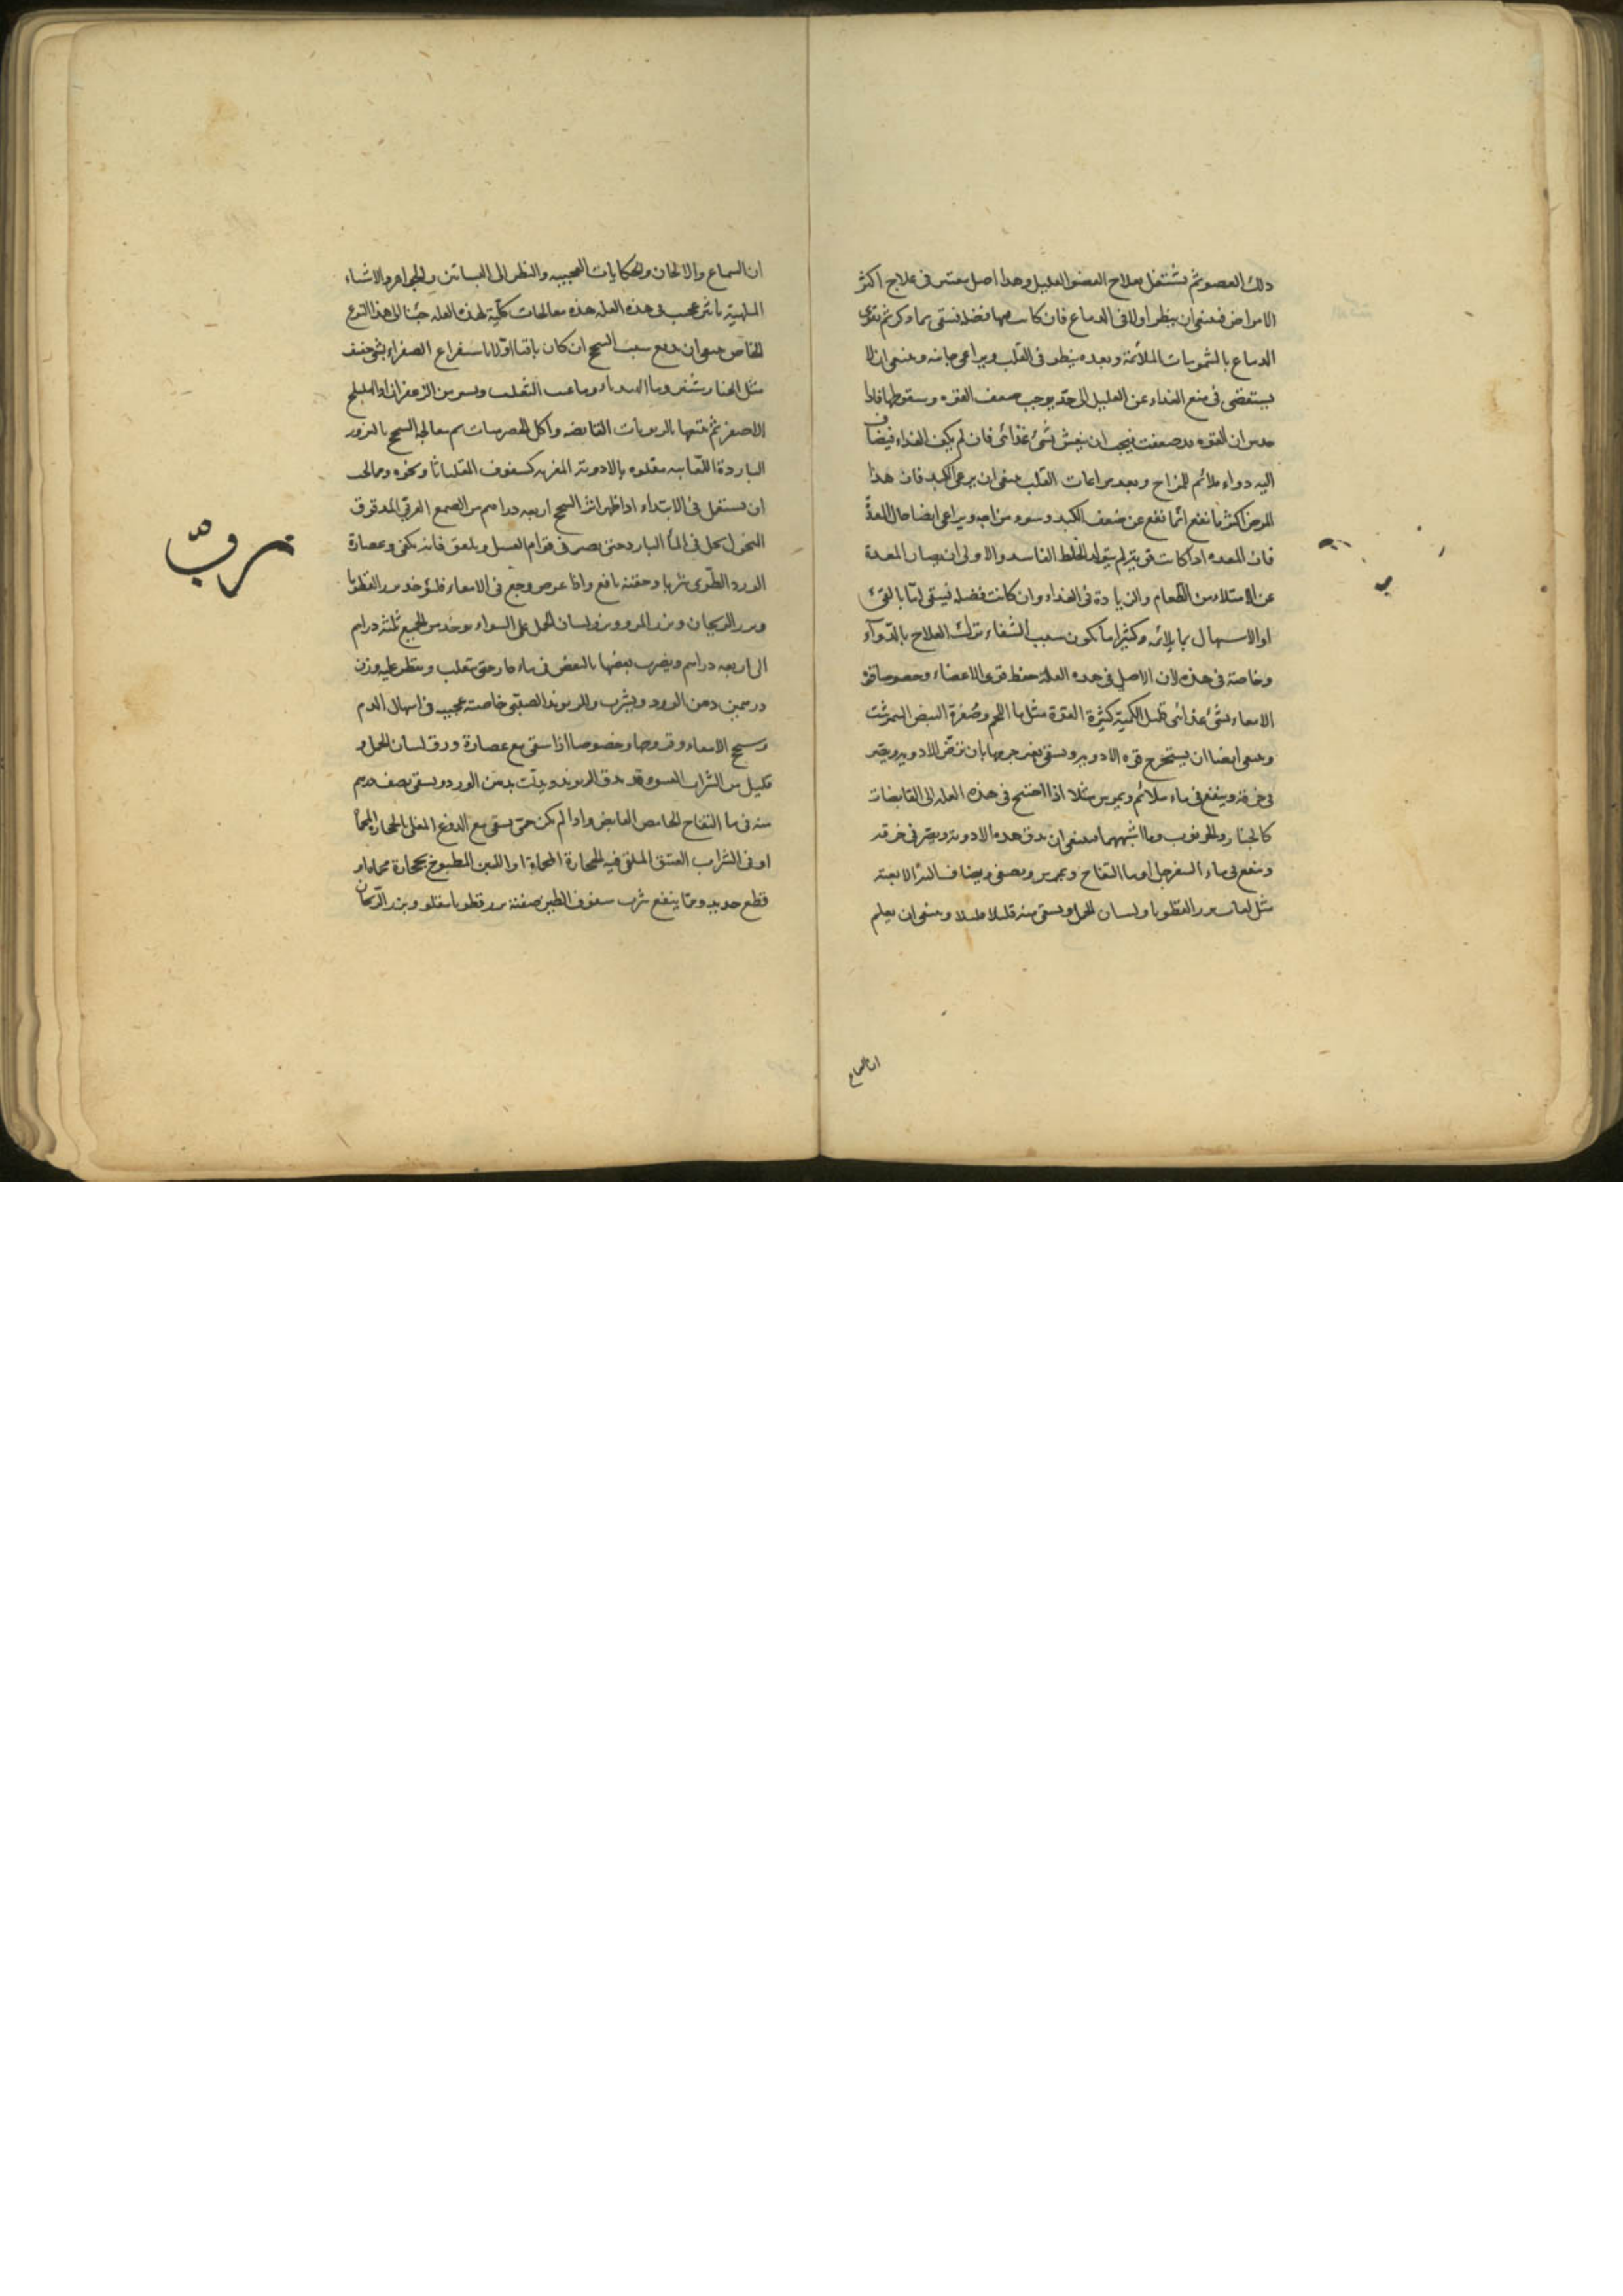 ذلك العضو ثم يشتغل بعلاج العضو العليل وهذا اصل معتبر فى علاج اكثر
الامراض فينبغى ان ينظر اولا فى الدماغ فان كانت فيها فضلة فينقى بما ذكر ثم يقوى
الدماغ بالشمومات الملائمة وبعده ينظر فى القلب ويراعى جانبه وينبغى ان لا
يستقضى فى منع الغذاء عن العليل الى حد يوجب ضعف القوه وسقوطها فاذا
حدس ان القوه قد ضعفت فيجب ان ينعش بشئ غذائى فان لم يكف الغذاء فيضاف
اليه دواء ملائم للمزاج وبعد مراعات القلب ينبغى ان يرعى الكبد فان هذا
المرض اكثر ما نفع انما نفع عن ضعف الكبد وسوء مزاجه ويراعى ايضا حال المعدة
فان المعده اذا كانت قوية لم يتولد الخلط الفاسد والاولى ان يصان المعدة
عن الامتلاء من الطعام والزيادة فى الغذاء وان كانت فضلة فينقى اما بالقئ
او الاسهال بما يلائمه وكثيرا ما يكون سبب الشفاء ترك العلاج بالدوآء
وخاصة فى هذه لان الاصل فى هذه العلة حفظ قوى الاعضاء وخصوصا قوة
الامعاء بشئ غذائى قليل الكمية كثيرة القوة مثل ما اللحم وصفرة البيض النيمرشت
وينبغى ايضا ان يستخرج قوه الادويه ويسقى بغير جرمها بان ترض الادويه ويصر
فى خرقة وينقع فى ماء ملائم ويمرس مثلا اذا احتيج فى هذه العله الى القابضات
كالجلنار والخرنوب وما اشبههما فينبغى ان يدق هذه الادوية ويصر فى خرقه
وينقع فى ماء السفرجل او ما التفاح ويمرس ويصفى ويضاف اليه الالعبة
مثل لعاب بزر القطونا ولسان الحمل ويسقى منه قليلا قليلا وينبغى ان يعلم
ان السماع
ان السماع والالحان والحكايات العجيبه والنظر الى البساتين والجواهر والاشياء
الملهية تاثير عجيب فى هذه العله هذه معالجات كلية لهذه العله جئنا الى هذا النوع
الخاص ينبغى ان يدفع سبب السحج ان كان باقيا اولا باستفراغ الصفراء بشئ خفيف
مثل الخيارشنبر وما الهندباء وما عنب الثعلب ويسير من الزعفران او الهليلج
الاصفر ثم يتبعها بالربوبات القابضه واكل الحصرميات ثم معالجة السحج بالبزور
الباردة اللعابيه مقلوه بالادوية المغريه كسفوف المقلياثا ونحوه ومما يجب
ان يستعمل فى الابتداء اذا ظهر اثر السحج اربعه دراهم من الصمغ العربى المدقوق
المنخول يحل فى الماء البارد حتى يصير فى قوام العسل ويلعق فانه يكفى وعصارة
الورد الطرى شربا وحقنة نافع واذا عرض وجع فى الامعاء فليؤخذ بزر القطونا
وبزر الريحان وبزر المرو وبزر لسان الحمل على السواء يوخذ من الجميع ثلثة دراهم
الى اربعه دراهم ويضرب بعضها بالبعض فى ماء حار حتى يتعلب ويقطر عليه وزن
درهمين دهن الورد ويشرب والريوند الصينى خاصته عجيبه فى اسهال الدم
وسحج الامعاء وقروحها وخصوصا اذا سقى مع عصارة ورق لسان الحمل و
قليل من الشراب العسق وقد يدق الريوند ويلت بدهن الورد ويسقى نصف درهم
منه فى ما التفاح الحامض القابض واذا لم يكن حمى يسقى مع الدوغ المغلى بالحجارة المحماة
او فى الشراب العتيق الملقى فيه الحجارة المحماة او اللبن المطبوخ بحجارة محماه او
قطع حديد ومما ينفع شرب سفوف الطين صفته بزر قطونا مقلو وبزر الريحان